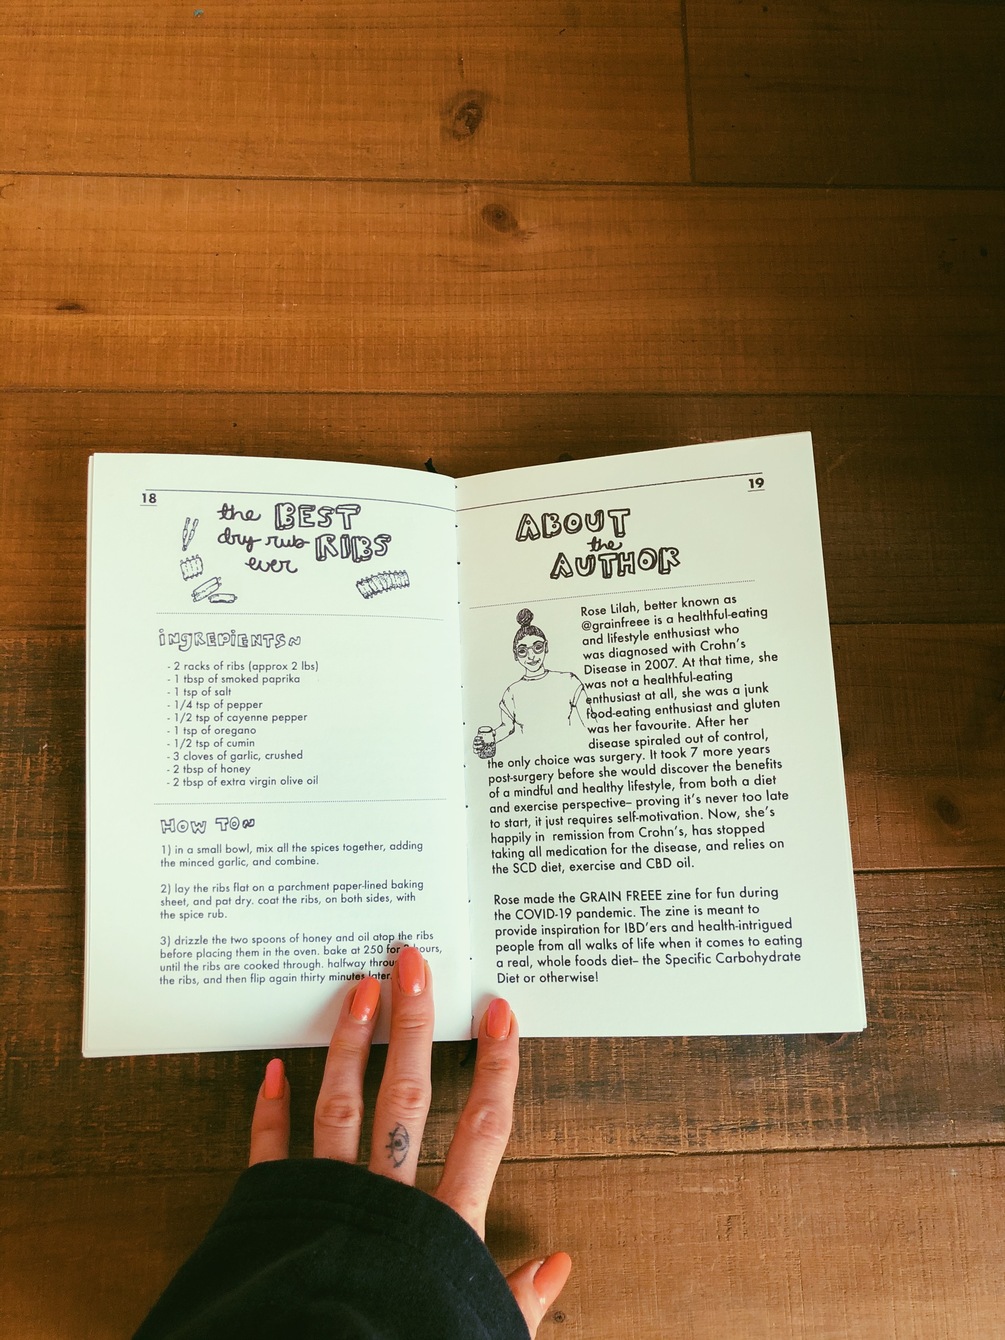 18
the BEST
dry rub RIBS
ever
INGREDIENTS
- 2 racks of ribs (approx 2 lbs)
- 1 tbsp of smoked paprika
- 1 tsp of salt
- 1/4 tsp of pepper
- 1/2 tsp of cayenne pepper
- 1 tsp of oregano
- 1/2 tsp of cumin
- 3 cloves of garlic, crushed
- 2 tbsp of honey
- 2 tbsp of extra virgin olive oil
HOW TO
1) in a small bowl, mix all the spices together, adding
the minced garlic, and combine.
2) lay the ribs flat on a parchment paper-lined baking
sheet, and pat dry. coat the ribs, on both sides, with
the spice rub.
3) drizzle the two spoons of honey and oil atop the ribs
before placing them in the oven. bake at 250 for hours,
until the ribs are cooked through. halfway
the ribs, and then flip again thirty minutes later.
19
ABOUT
the
AUTHOR
Rose Lilah, better known as
@grainfreee is a healthful-eating
and lifestyle enthusiast who
was diagnosed with Crohn's
Disease in 2007. At that time, she
was not a healthful-eating
enthusiast at all, she was a junk
food-eating enthusiast and gluten
was her favourite. After her
disease spiraled out of control,
the only choice was surgery. It took 7 more years
post-surgery before she would discover the benefits
of a mindful and healthy lifestyle, from both a diet
and exercise perspective– proving it's never too late
to start, it just requires self-motivation. Now, she's
happily in remission from Crohn's, has stopped
taking all medication for the disease, and relies on
the SCD diet, exercise and CBD oil.
Rose made the GRAIN FREEE zine for fun during
the COVID-19 pandemic. The zine is meant to
provide inspiration for IBD'ers and health-intrigued
people from all walks of life when it comes to eating
a real, whole foods diet– the Specific Carbohydrate
Diet or otherwise!